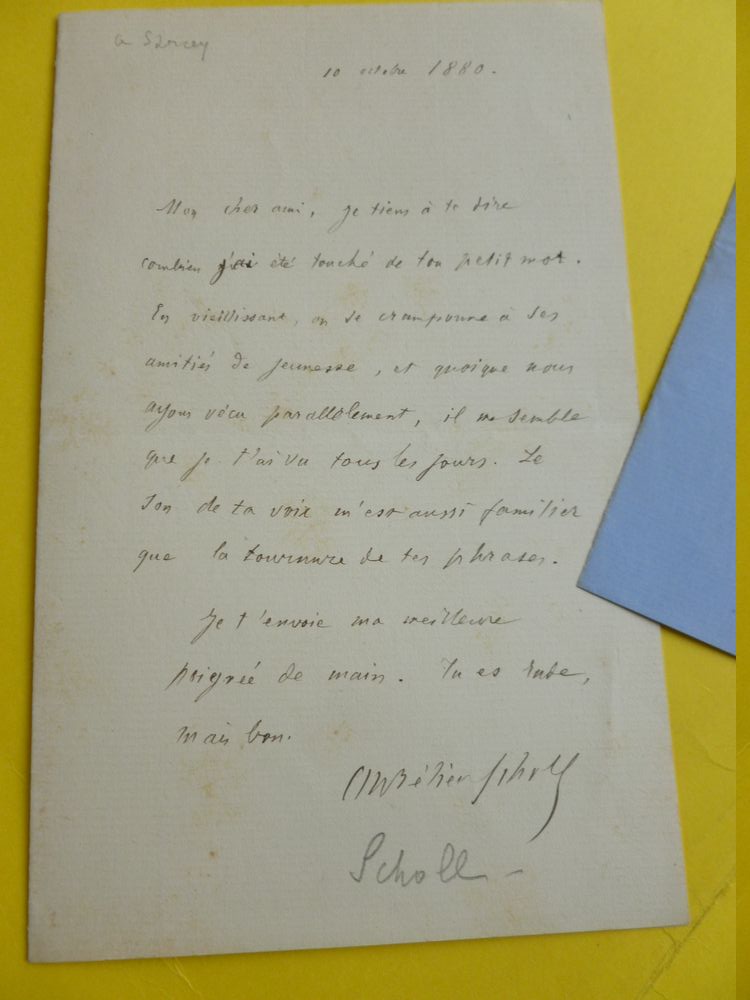 a Sarcey
10 octobre 1880.
Mon cher ami, je tiens à te dire
combien j'ai été touché de ton petit mot.
En vieillissant, on se cramponne à ses
amitiés de jeunesse, et quoique nous
ayons vécu parallèlement, il me semble
que je t'ai vu tous les jours. Le
son de ta voix m'est aussi familier
que la tournure de tes phrases.
Je t'envoie ma meilleure
poignée de main. Tu es rude,
mais bon.
Aurélien Scholl
Scholl